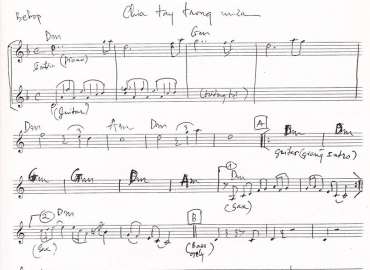 Bebop Chia tay trong mưa
Dm Gm
Intro (piano)
(Guitar) (tương tự)
Dm Am Dm A Dm Dm
guitar (giống Intro)
Gm Gm Dm Am 1 Dm
(Sax)
2 Dm B
(Sax) (Bass only)